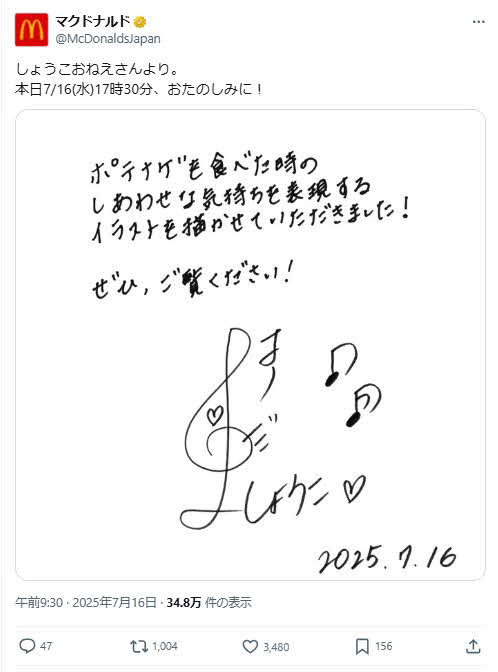 マクドナルド
@McDonaldsJapan
しょうこおねえさんより。
本日7/16(水)17時30分、おたのしみに！
ポテナゲを食べた時の
しあわせな気持ちを表現する
イラストを描かせていただきました！
ぜひ、ご覧ください！
はいだ
しょうこ♡
2025.7.16
午前9:30 · 2025年7月16日 · 34.8万 件の表示
47 1,004 3,480 156